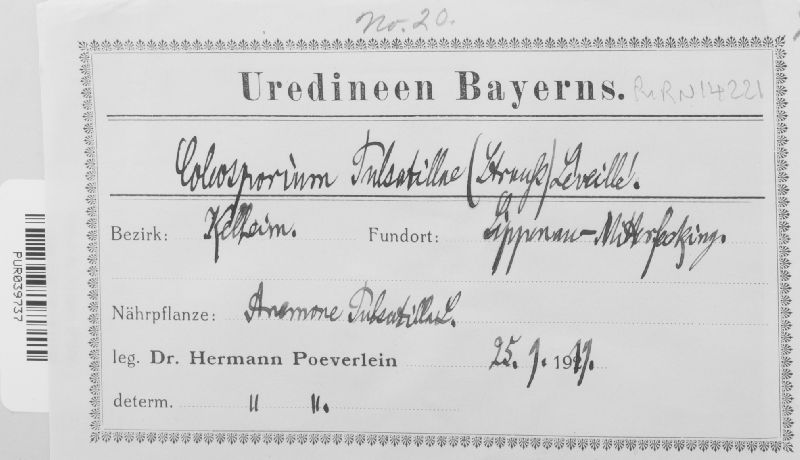 No. 20.
Uredineen Bayerns. PURN14221
Coleosporium Pulsatillae (Strauß) Léveillé.
Bezirk: Kelheim. Fundort: -Mitterfecking.
Nährpflanze: Anemone Pulsatilla L.
leg. Dr. Hermann Poeverlein 25. 9. 1919.
determ. " ".
PUR039737